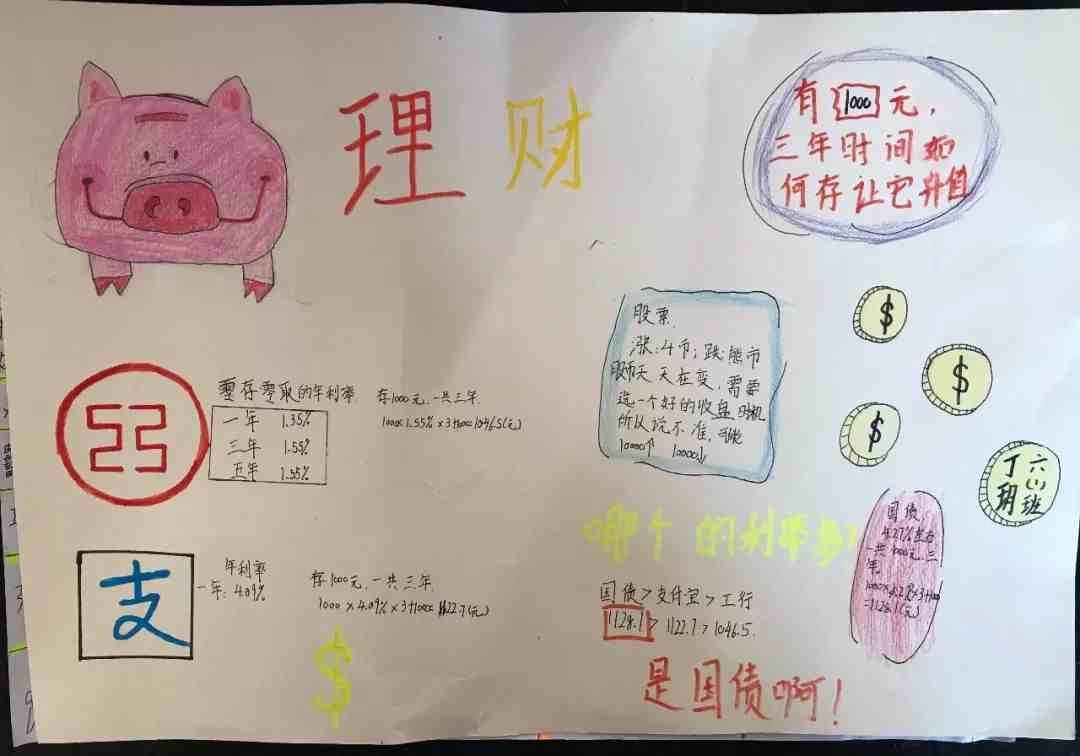 理财
有1000元，
三年时间如
何存让它升值
股票
涨:牛市;跌:熊市
股市天天在变，需要
选一个好的收盘时机
所以说不准，可能
10000↑ 10000↓
$
$
$
六(1)班
丁玥
零存零取的年利率
一年 1.35%
三年 1.55%
五年 1.55%
存1000元，一共三年
1000×1.55%×3+1000=1046.5(元)
支
年利率
一年:4.09%
存1000元，一共三年
1000×4.09%×3+1000=1122.7(元)
$
哪个的利率多?
国债
4.27%左右
一共1000元，三
年
1000×4.27%×3+1000
=1128.1(元)
国债>支付宝>工行
1128.1>1122.7>1046.5.
是国债啊!